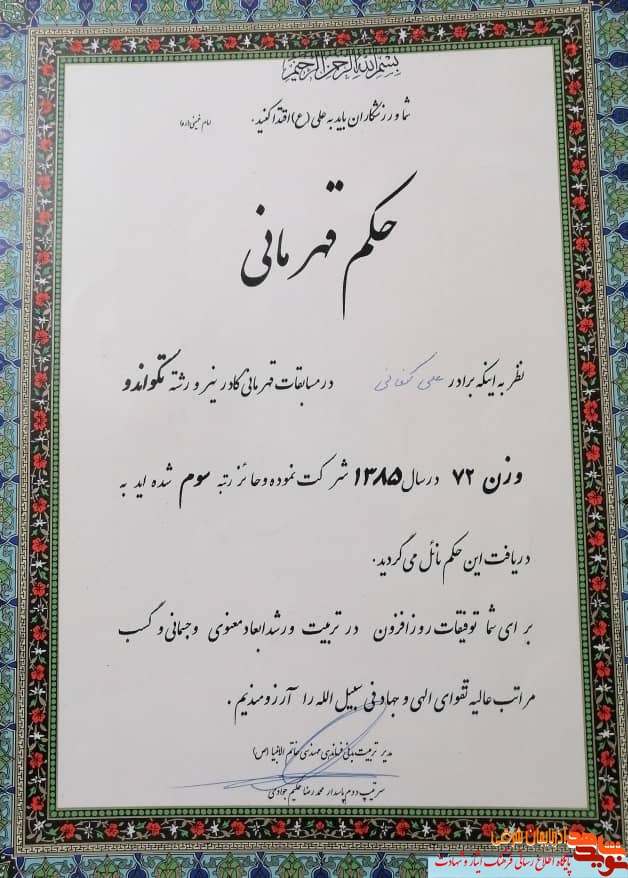 بسم الله الرحمن الرحیم
شما ورزشکاران باید به علی (ع) اقتدا کنید.
امام خمینی (ره)
حکم قهرمانی
نظر به اینکه برادر علی کنعانی در مسابقات قهرمانی کادر نیرو رشته تکواندو
وزن ۷۲ در سال ۱۳۸۵ شرکت نموده و حائز رتبه سوم شده اید به
دریافت این حکم نائل می گردید.
برای شما توفیقات روز افزون در تربیت و رشد ابعاد معنوی و جسمانی و کسب
مراتب عالیه تقوای الهی و جهاد فی سبیل الله را آرزومندیم.
مدیر تربیت بدنی فرماندهی مهندسی خاتم الانبیا (ص)
سرتیپ دوم پاسدار محمد رضا علیم جوادی
نوید شاهد آذربایجان شرقی
پایگاه اطلاع رسانی فرهنگ ایثار و شهادت